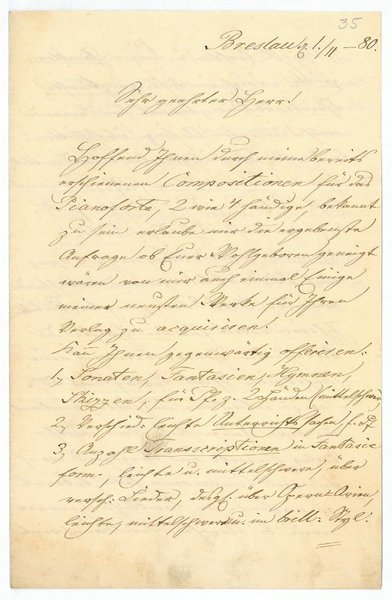 35
Breslau, 1./11 – 80.
Sehr geehrter Herr!
Hoffend Ihnen durch meine bereits
erschienenen Compositionen für das
Pianoforte, 2 wie 4 händige, bekannt
zu sein erlaube mir die ergebenste
Anfrage ob Euer Wohlgeboren geneigt
wären von mir auch einmal Einige
meiner neusten Werke für Ihren
Verlag zu acquirieren.
Kann Ihnen gegenwärtig offerieren:
1, Sonaten, Fantasien, Hymnen,
Skizzen, für Pf. z. 2 Händen (mittelschwer
2, Verschied: leichte Unterrichtssachen f.
3, Anzahl Transscriptionen in Fantasie
form, leichte u. mittelschwere, über
versch: Lieder, desgl. über Opern-Arien
leichte, mittelschwere u. im brill: Styl.